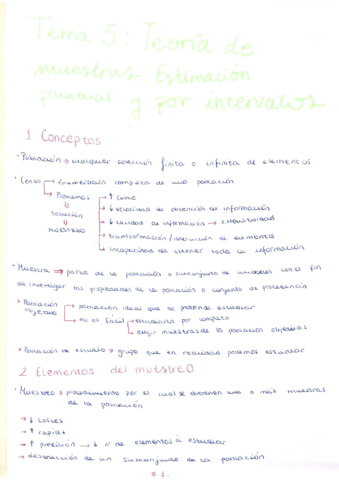 Tema 5: Teoría de
muestras. Estimación
puntual y por intervalos
1 Conceptos
· Población → cualquier colección finita o infinita de elementos
· Censo → Enumeración completa de una población
→ Problemas → ↑ Coste
⇓ → ↓ velocidad de obtención de información
solución → ↓ calidad de información → exhaustividad
⇓ → transformación/destrucción de elementos
MUESTREO → incapacidad de obtener toda la información
· Muestra ⇒ parte de la población o subconjunto de unidades con el fin
de investigar las propiedades de la población o conjunto de procedencia
> Población → población ideal que se pretende estudiar
objetivo → no es fácil → estudiarla por completo
→ elegir muestras de la población objetivos
> Población de estudio → grupo que en realidad podemos estudiar
2 Elementos del muestreo
· Muestreo → procedimiento por el cual se obtienen una o más muestras
de la población
→ ↓ costes
→ ↑ rapidez
→ ↑ precisión → ↓ nº de elementos a estudiar
→ destrucción de un subconjunto de la población
5.1.